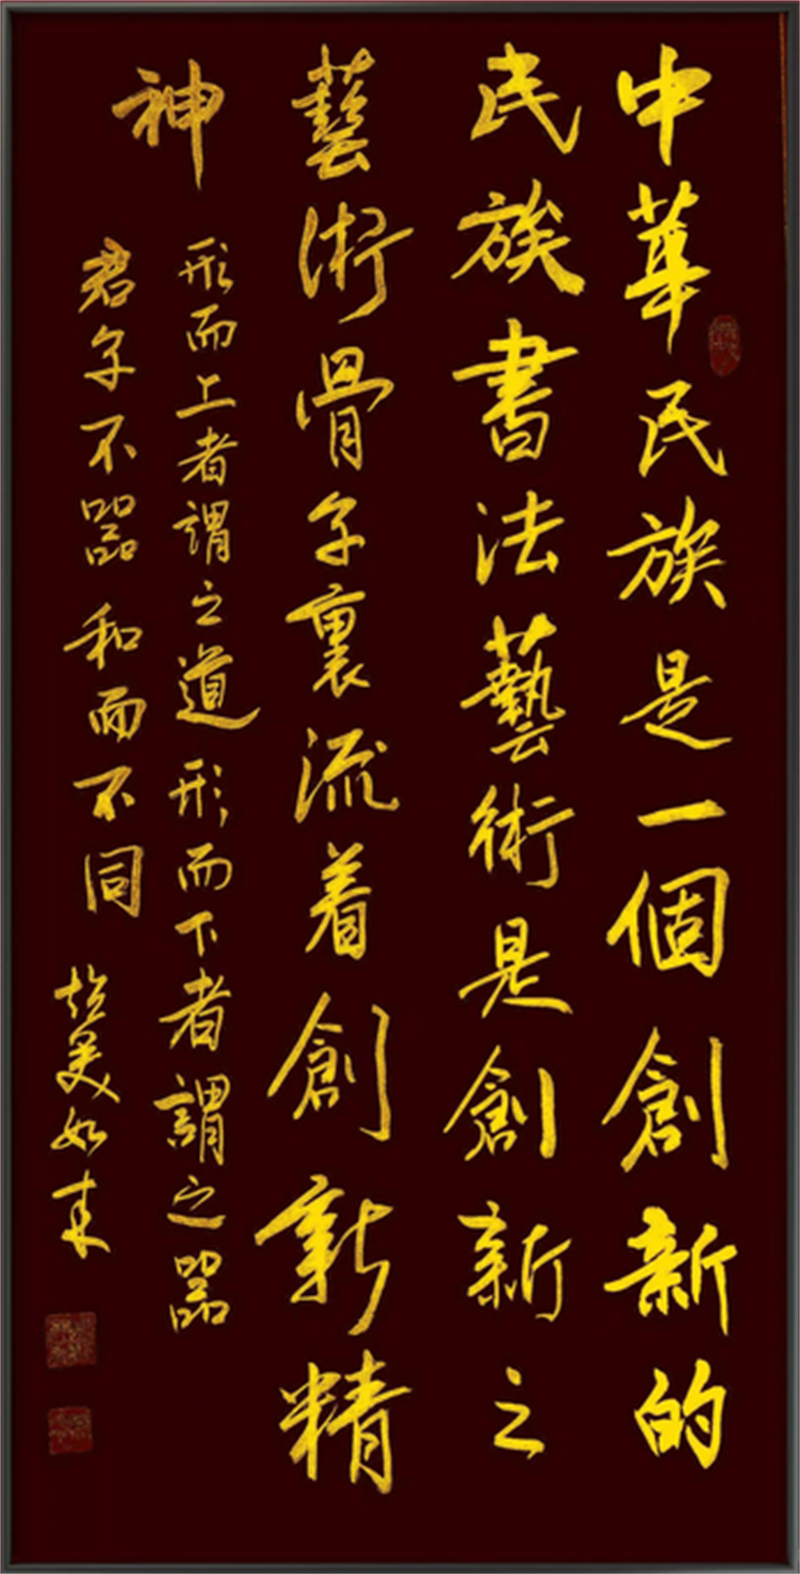 中華民族是一個創新的
民族書法藝術是創新之
藝術骨子裏流着創新精
神
形而上者謂之道形而下者謂之器
君子不器和而不同
美如来